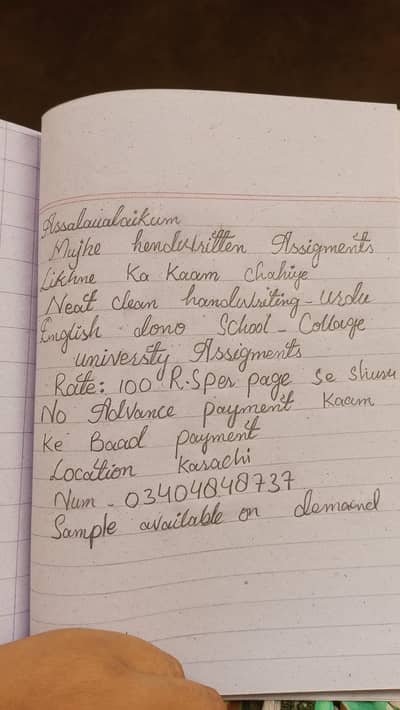 Assalaualaikum
Mujhe hendwritten Assigments
Likhne Ka Kaam chahiye
Neat clean handwriting - Urdu
English dono School - Collage
university Assigments
Rate: 100 R.S per page se shuru
No Advance payment Kaam
Ke Baad payment
Location Karachi
Num - 03404848737
Sample available on demand